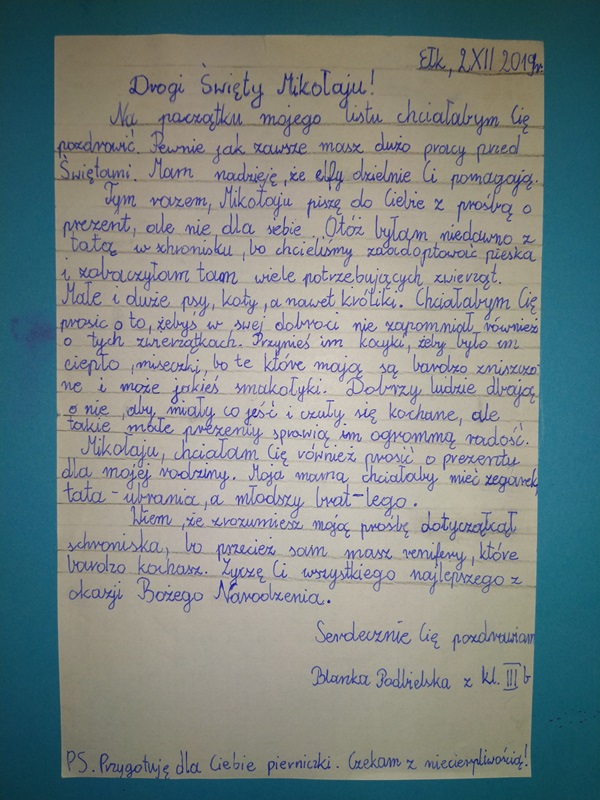 Ełk, 2 XII 2019r.
Drogi Święty Mikołaju!
Na początku mojego listu chciałabym Cię
pozdrowić. Pewnie jak zawsze masz dużo pracy przed
Świętami. Mam nadzieję, że elfy dzielnie Ci pomagają.
Tym razem, Mikołaju piszę do Ciebie z prośbą o
prezent, ale nie dla siebie. Otóż byłam niedawno z
tatą w schronisku, bo chcieliśmy zaadoptować pieska
i zobaczyłam tam wiele potrzebujących zwierząt.
Małe i duże psy, koty, a nawet króliki. Chciałabym Cię
prosić o to, żebyś w swej dobroci nie zapomniał również
o tych zwierzątkach. Przynieś im kocyki, żeby było im
ciepło, miseczki, bo te które mają są bardzo zniszczo
ne i może jakieś smakołyki. Dobrzy ludzie dbają
o nie, aby miały co jeść i czuły się kochane, ale
takie małe prezenty sprawią im ogromną radość.
Mikołaju, chciałam Cię również prosić o prezenty
dla mojej rodziny. Moja mama chciałaby mieć zegarek,
tata - ubrania, a młodszy brat - lego.
Wiem, że zrozumiesz moją prośbę dotyczącą
schroniska, bo przecież sam masz renifery, które
bardzo kochasz. Życzę Ci wszystkiego najlepszego z
okazji Bożego Narodzenia.
Serdecznie Cię pozdrawiam
Blanka Podbielska z kl. III b
PS. Przygotuję dla Ciebie pierniczki. Czekam z niecierpliwością!